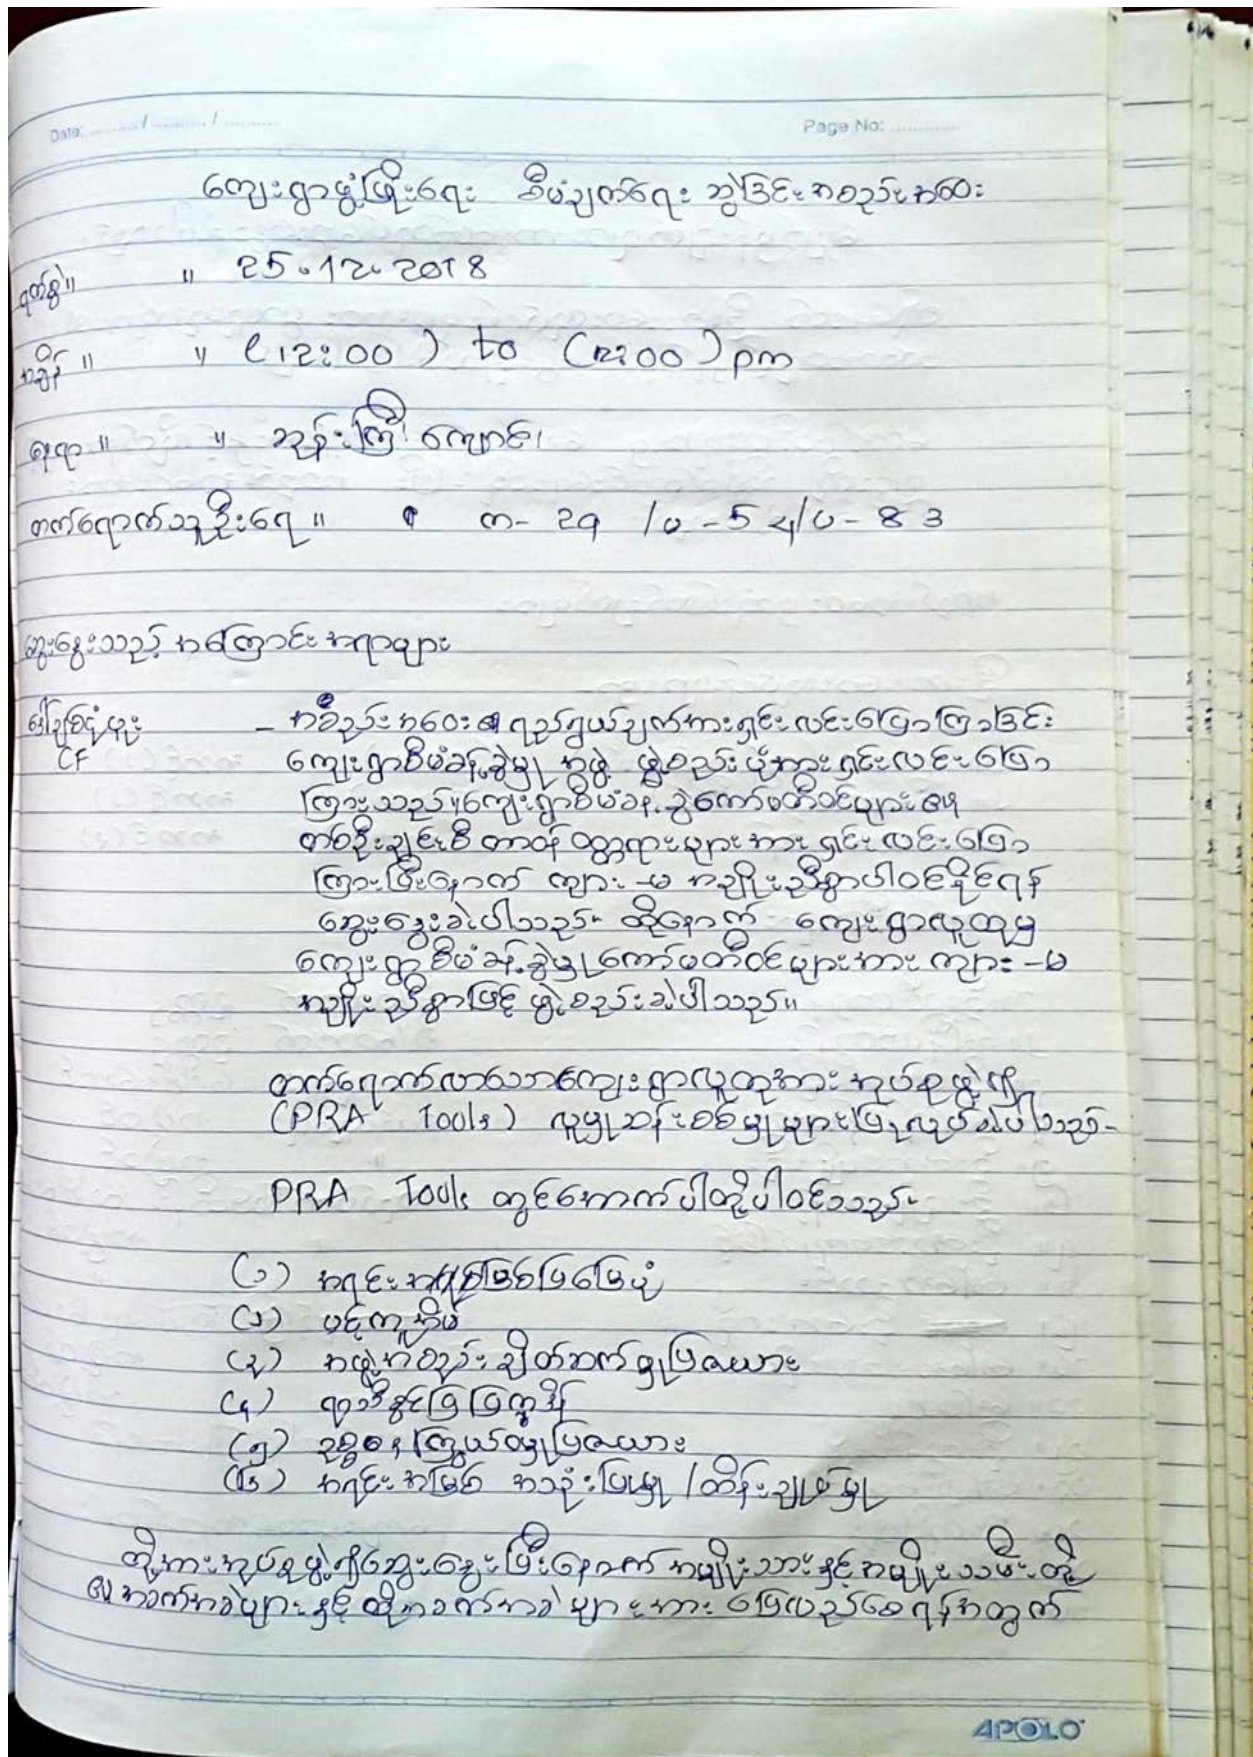 Date: ......../......../........ Page No: ............
ကျေးရွာဖွံ့ဖြိုးရေး စီမံချက်ရေး ဆွဲခြင်းအစည်းအဝေး
ရက်စွဲ။ " 25.12.2018
အချိန် ။ " (12:00) to (2:00) pm
နေရာ ။ " ဘုန်းကြီးကျောင်း၊
တက်ရောက်သူဦးရေ ။ က- 29 /မ -54/ပ - 83
ဆွေးနွေးသည့် အကြောင်းအရာများ
CF
- အစည်းအဝေး၏ ရည်ရွယ်ချက်အားရှင်းလင်းပြောကြားခြင်း
ကျေးရွာစီမံခန့်ခွဲမှု အဖွဲ့ ဖွဲ့စည်းပုံအားရှင်းလင်းပြော
ကြားသည်။ကျေးရွာစီမံခန့်ခွဲကော်မတီဝင်များ၏
တစ်ဦးချင်းစီ တာဝန် ဝတ္တရားများအား ရှင်းလင်းပြော
ကြားပြီးနောက် ကျား -မ အချိုးညီစွာပါဝင်နိုင်ရန်
ဆွေးနွေးခဲ့ပါသည်။ ထို့နောက် ကျေးရွာလူထုမှ
ကျေးရွာစီမံခန့်ခွဲမှုကော်မတီဝင်များအား ကျား -မ
အချိုးညီစွာဖြင့် ဖွဲ့စည်းခဲ့ပါသည်။
တက်ရောက်လာသောကျေးရွာလူထုအား အုပ်စုဖွဲ့၍
(PRA Tools) လူမှုဆန်းစစ်မှုများပြုလုပ်ခဲ့ပါသည်-
PRA Tools တွင်အောက်ပါတို့ပါဝင်သည်-
(၁) အရင်းအမြစ်ပြမြေပုံ
(၂) ပင့်ကူအိမ်
(၃) အဖွဲ့အစည်း ချိတ်ဆက်မှုပြဇယား
(၄) ရာသီခွင်ပြ ပြက္ခဒိန်
(၅) ဥစ္စာဓန ကြွယ်ဝမှုပြဇယား
(၆) အရင်းအမြစ် အသုံးပြုမှု /ထိန်းချုပ်မှု
တို့အားအုပ်စုဖွဲ့၍ဆွေးနွေးပြီးနောက် အမျိုးသားနှင့်အမျိုးသမီးတို့
၏အခက်အခဲများနှင့် ထိုအခက်အခဲများအား ပြေလည်စေရန်အတွက်
APOLO